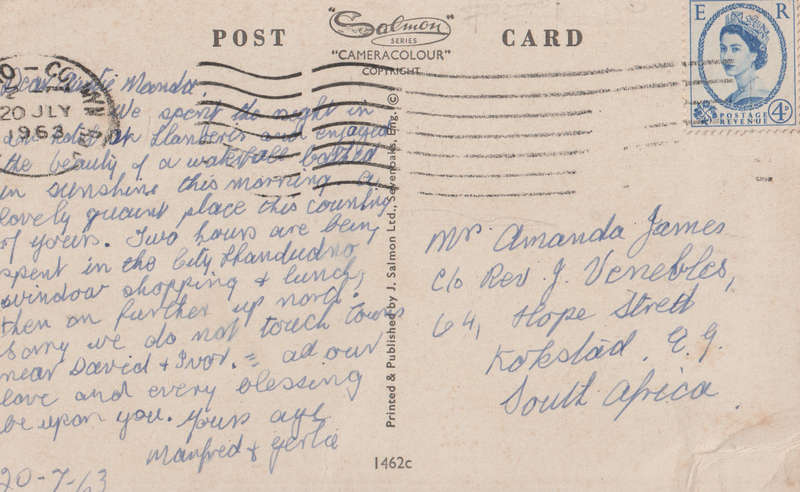 POST CARD
"Salmon"
SERIES
"CAMERACOLOUR"
COPYRIGHT
E R
4D
POSTAGE
REVENUE
20 JLY
1963
Dear Auntie Manda.
We spent the night in
an hotel in Llanberis and enjoyed
the beauty of a waterfall bathed
in sunshine this morning. A
lovely quaint place this country
of yours. Two hours are being
spent in the City Llandudno
window shopping & lunch,
then on further up north.
Sorry we do not touch towns
near David & Ivor. = all our
love and every blessing
be upon you. Yours aye
Manfred & Gertie
20-7-63
Printed & Published by J. Salmon Ltd., Sevenoaks, Eng. ©
1462c
Mrs Amanda James
c/o Rev. J. Venebles,
64, Hope Street
Kokstad. E.G.
South Africa.